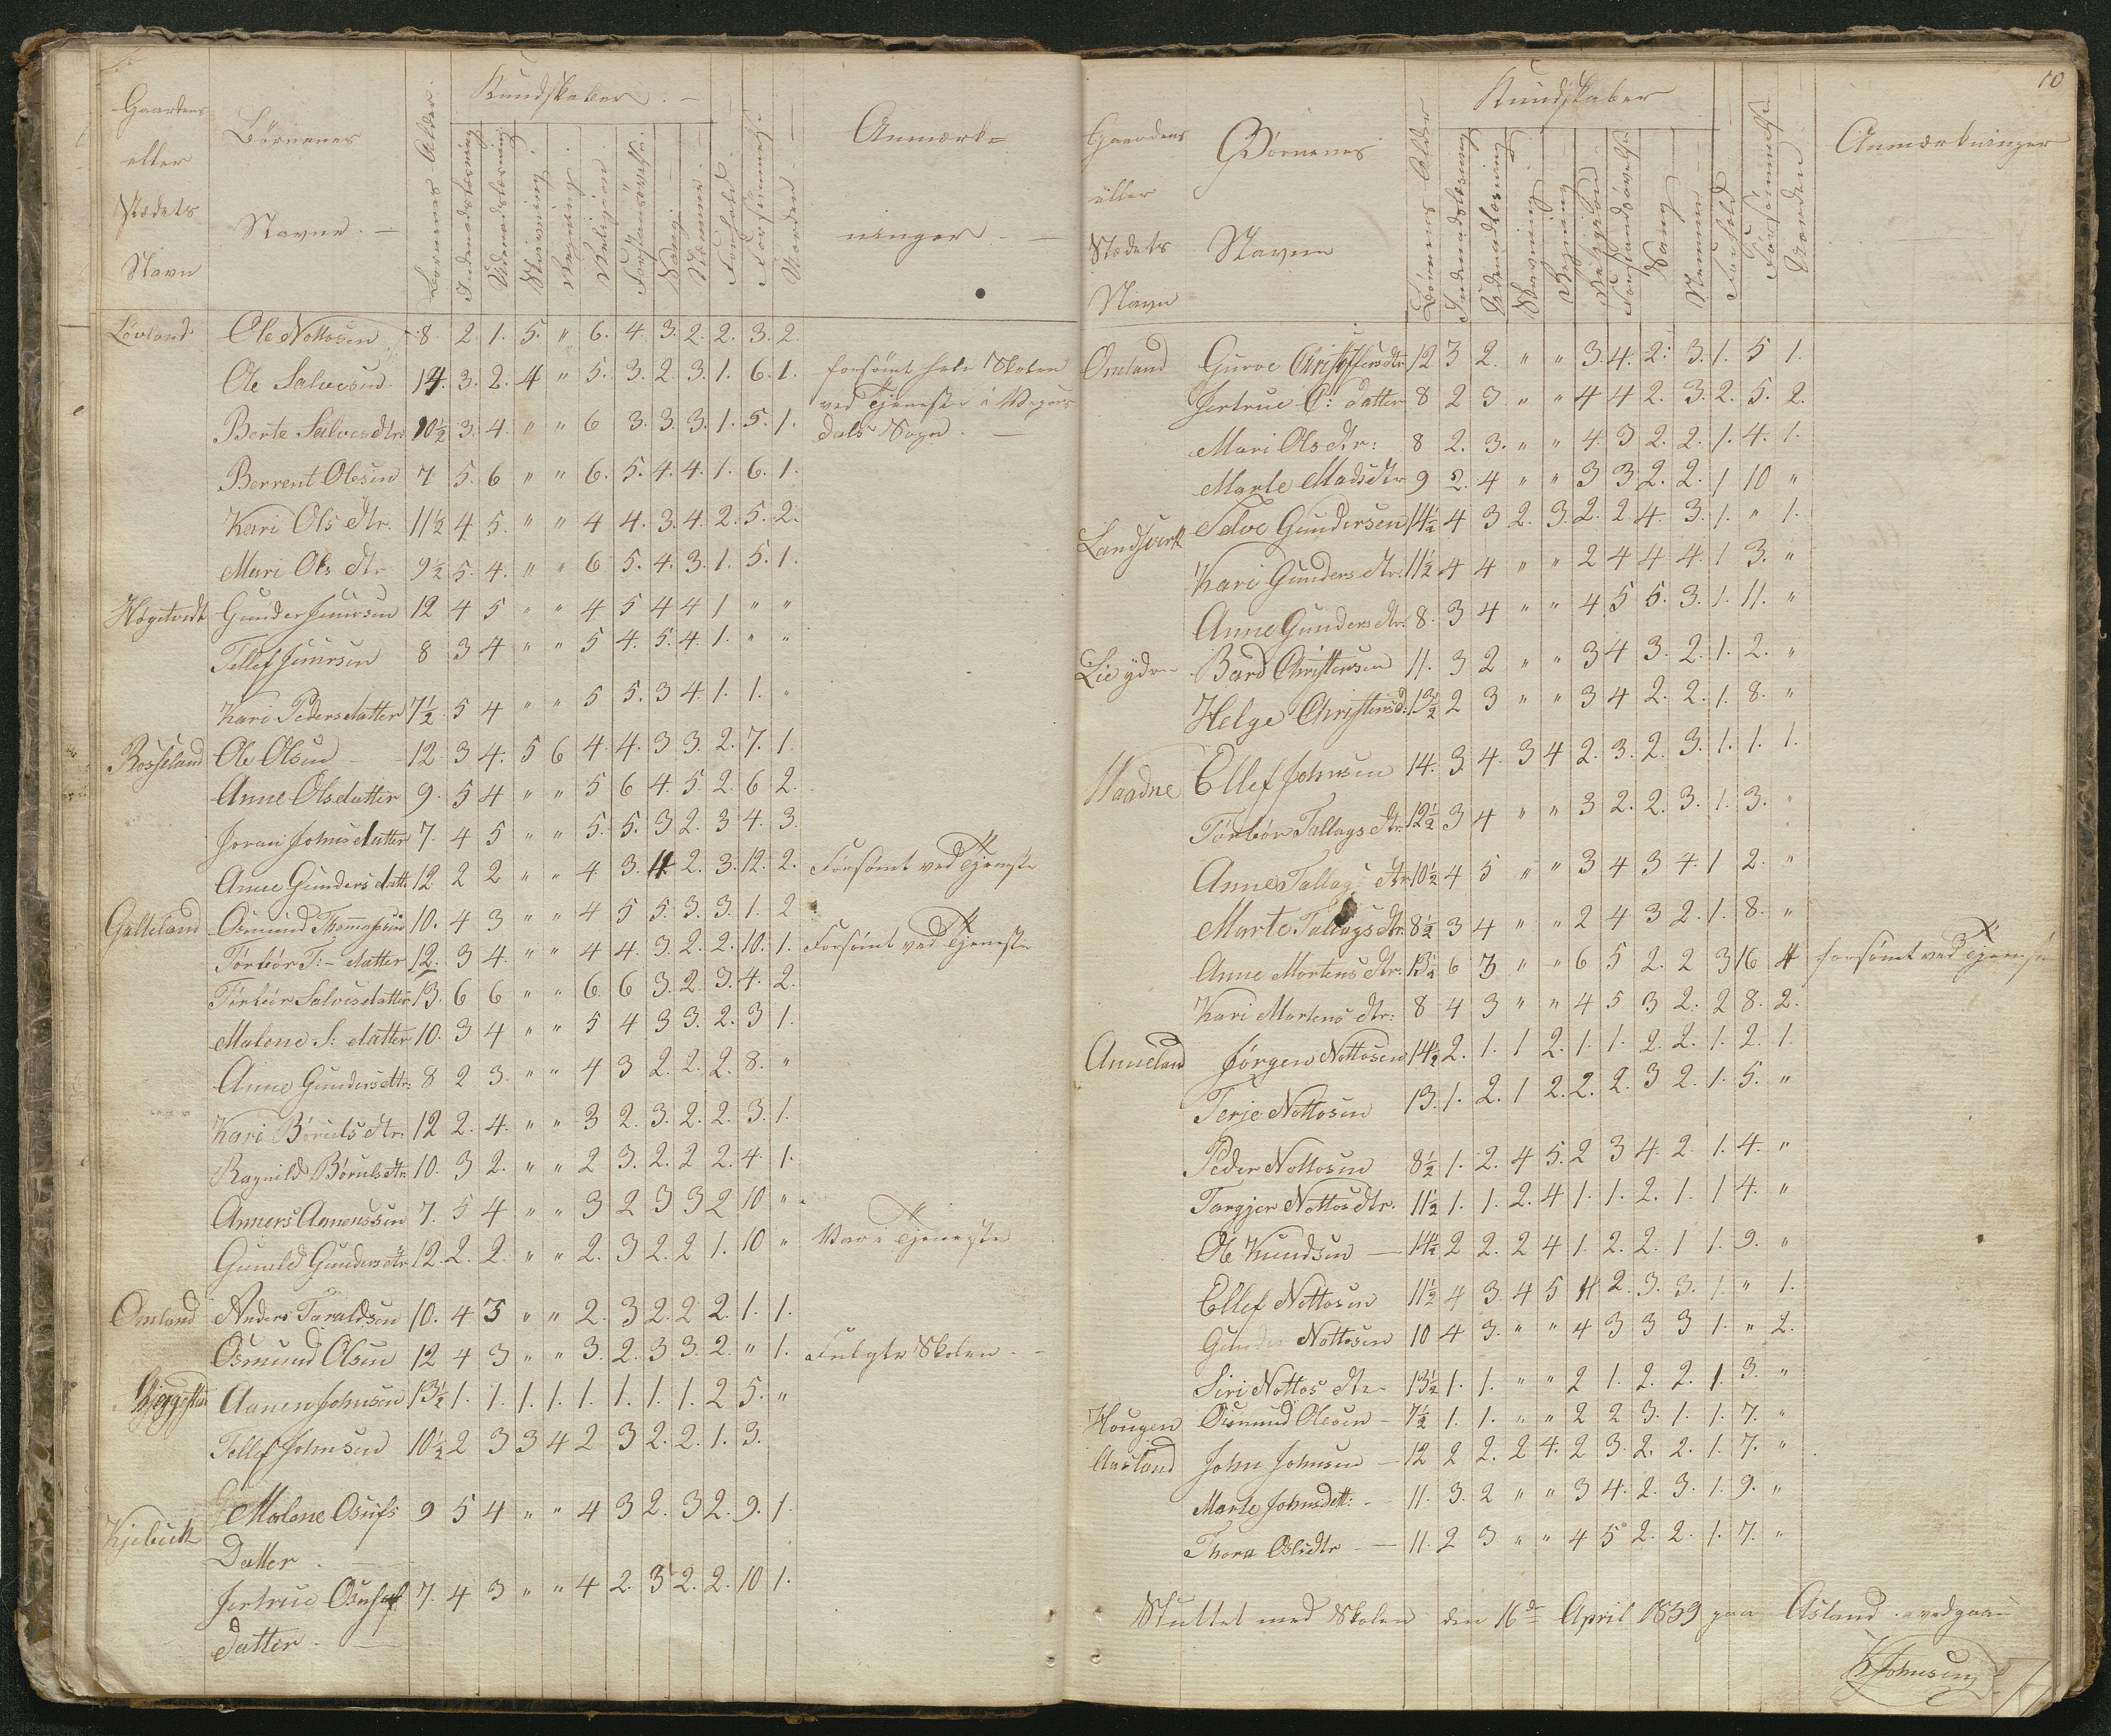 Gaardens
eller
Stædets
Navn
Børnenes
Navne. —
Børnenes Alder
Kundskaber. —
Indenadslæsning
Udenadslæsning
Skrivning
Regning
Religion
Forstandsøvelse
Sang
Nemme
Forhold
Forsømmelse
Orden
Anmærk=
ninger. —
Løvland Ole Nottosen 8 2. 1. 5. " 6. 4 3. 2. 2. 3. 2.
Ole Salvesen 14. 3. 2. 4 " 5. 3. 2. 3. 1. 6. 1. forsømt hele Skolen
ved Tjeneste i
Berte Salvesdtr 10½ 3. 4. " " 6 3. 3. 3. 1. 5. 1. dals Sogn. —
Berrent Olesen 7 5. 6 " " 6. 5. 4. 4. 1. 6. 1.
Kari Ols dtr. 11½ 4 5. " " 4 4. 3. 4. 2. 5. 2.
Mari Ols dtr 9½ 5. 4. " " 6 5. 4. 3. 1. 5. 1.
Høgetvedt Gunder Juursen 12 4 5 " " 4 5 4 4 1 " "
Tellef Juursen 8 3 4 " " 5 4. 5. 4 1. " "
Kari Pedersdatter 7½ 5 4 " " 5 5. 3 4 1. 1. "
Rosseland Ole Olsen 12 3 4. 5 6 4. 4. 3 3. 2. 7. 1.
Anne Olsdatter 9. 5 4 " " 5 6 4. 5 2 6 2.
Joran Johnsdatter 7. 4 5 " " 5. 5. 3 2. 3 4. 3.
Anne Gunders datt. 12 2 2 " " 4 3. 4 2. 3. 12. 2. Forsømt ved Tjeneste
Galteland Osmund Thommesen 10. 4 3 " " 4 5 5. 3. 3. 1. 2
Tørbør T:- datter 12. 3 4. " " 4 4. 3. 2. 2. 10. 1. Forsømt ved Tjeneste
Tørbør Salvesdatter 13. 6 6 " " 6 6 3. 2. 3. 4. 2.
Malene S: datter 10. 3 4 " " 5 4 3 3. 2. 3 1.
Anne Gundersdtr. 8 2 3. " " 4 3 2. 2. 2. 8. "
Kari Børuls dtr. 12 2. 4. " " 3 2. 3. 2. 2. 3. 1.
Ragnild Børulsdtr. 10. 3 2. " " 2 3. 2. 2 2. 4. 1.
Anners Annensen 7. 5 4 " " 3 2 3 3 2 10 "
Gunild Gundersdtr 12. 2. 2. " " 2. 3 2. 2 1. 10 " Var i Tjeneste
Omland Anders Taraldsen 10. 4 3 " " 2. 3 2. 2 2. 1. 1.
Osmund Olsen 12 4 3 " " 3. 2. 3 3. 2. " 1. Fulgte Skolen. —
Annen Johnsen 13½ 1. 1. 1. 1. 1. 1. 1. 1. 2 5. "
Tellef Johnsen 10½ 2 3 3 4 2 3 2. 2. 1. 3.
Kjebuck Malene Osufs 9 5 4 " " 4 3 2. 3 2. 9. 1.
Datter. —
Jertrue Osufs 7. 4 3 " " 4 2. 3 2. 2. 10 1.
datter. —
10
Gaardens
eller
Stædets
Navn
Børnenes
Navne
Børnenes Alder
Kundskaber
Indenadslæsning
Udenadlæsning
Skrivning
Regning
Religion
Forstandsøvelse
Sang
Nemme
Forhold
Forsømmelse
Orden
Anmærkninger
Omland Guroe Christoffersdtr 12 3 2. " " 3. 4. 2. 3. 1. 5 1.
Jertrue C: datter 8 2 3. " " 4 4 2. 3. 2. 5. 2.
Mari Ols dtr: 8 2. 3. " " 4. 3 2. 2. 1. 4. 1.
Marte Madsdtr 9 2. 4 " " 3 3 2. 2. 1 10 "
Landsverk Salve Gundersen 14½ 4 3 2. 3. 2. 2 4. 3. 1. " 1.
Kari Gunders dtr: 11½ 4 4 " " 2 4 4 4. 1 3. "
Anne Gundersdtr: 8. 3 4 " " 4 5 5. 3. 1. 11. "
Lie ydre Bard Christensen 11. 3 2 " " 3 4 3. 2. 1. 2. "
Helge Christensd: 13½ 2 3 " " 3 4 2. 2. 1. 8. "
Maadne Ellef Johnsen 14. 3. 4. 3 4 2. 3. 2. 3. 1. 1. 1.
Tørbør Tallags dtr. 12½ 3 4 " " 3 2. 2. 3. 1. 3. "
Anne Tallags dtr. 10½ 4 5 " " 3 4 3 4. 1 2. "
Marte Tallags dtr. 8½ 3 4 " " 2 4 3 2. 1. 8. "
Anne Mortens dtr. 13½ 6 3 " " 6 5 2. 2 3 16 4 forsømt ved Tjeneste
Kari Mortens dtr: 8 4 3 " " 4 5 3 2. 2 8. 2.
Anneland Jørgen Nottosen 14½ 2. 1. 1 2. 1. 1. 2. 2. 1. 2. 1.
Terje Nottosen 13. 1. 2. 1 2. 2. 2. 3 2. 1. 5. "
Peder Nottosen 8½ 1. 2. 4 5. 2 3 4. 2 1. 4. "
Targjer Nottosdtr. 11½ 1. 1. 2. 4 1. 1. 2. 1. 1 4. "
Ole Knudsen — 14½ 2 2. 2 4 1. 2. 2. 1 1. 9. "
Ellef Nottosen 11½ 4 3. 4 5 4 2. 3. 3. 1. " 1.
Gunder Nottosen 10 4 3. " " 4 3 3 3 1. " 2.
Siri Nottos dtr. 13½ 1. 1. " " 2 1. 2. 2. 1. 3. "
Hougen Osmund Olesen - 7½ 1. 1. " " 2 2 3. 1. 1. 7. "
Aasland John Johnsen — 12 2 2. 2 4. 2 3. 2. 2. 1. 7. "
Marte Johnsdtt: - 11. 3. 2 " " 3 4. 2. 3. 1. 9. "
Thora Olsdtr - — 11. 2 3 " " 4 5 2. 2. 1. 7. "
Sluttet med Skolen den 16de April 1839 paa Asland. vedgaar
K Johnsen